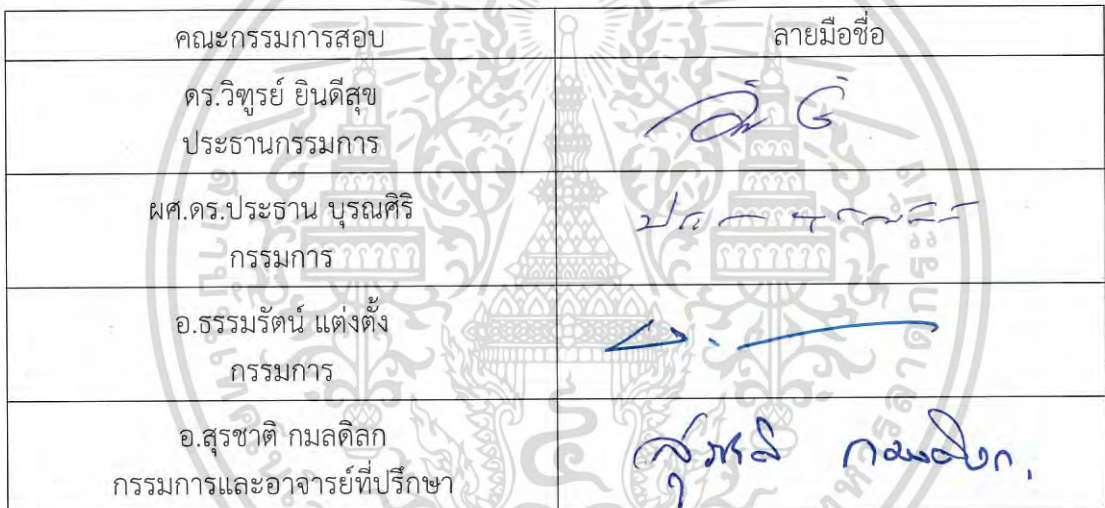 คณะกรรมการสอบ ลายมือชื่อ
ดร.วิฑูรย์ ยินดีสุข
ประธานกรรมการ
ผศ.ดร.ประธาน บุรณศิริ
กรรมการ
อ.ธรรมรัตน์ แต่งตั้ง
กรรมการ
อ.สุรชาติ กมลดิลก
กรรมการและอาจารย์ที่ปรึกษา
สุรชาติ กมลดิลก